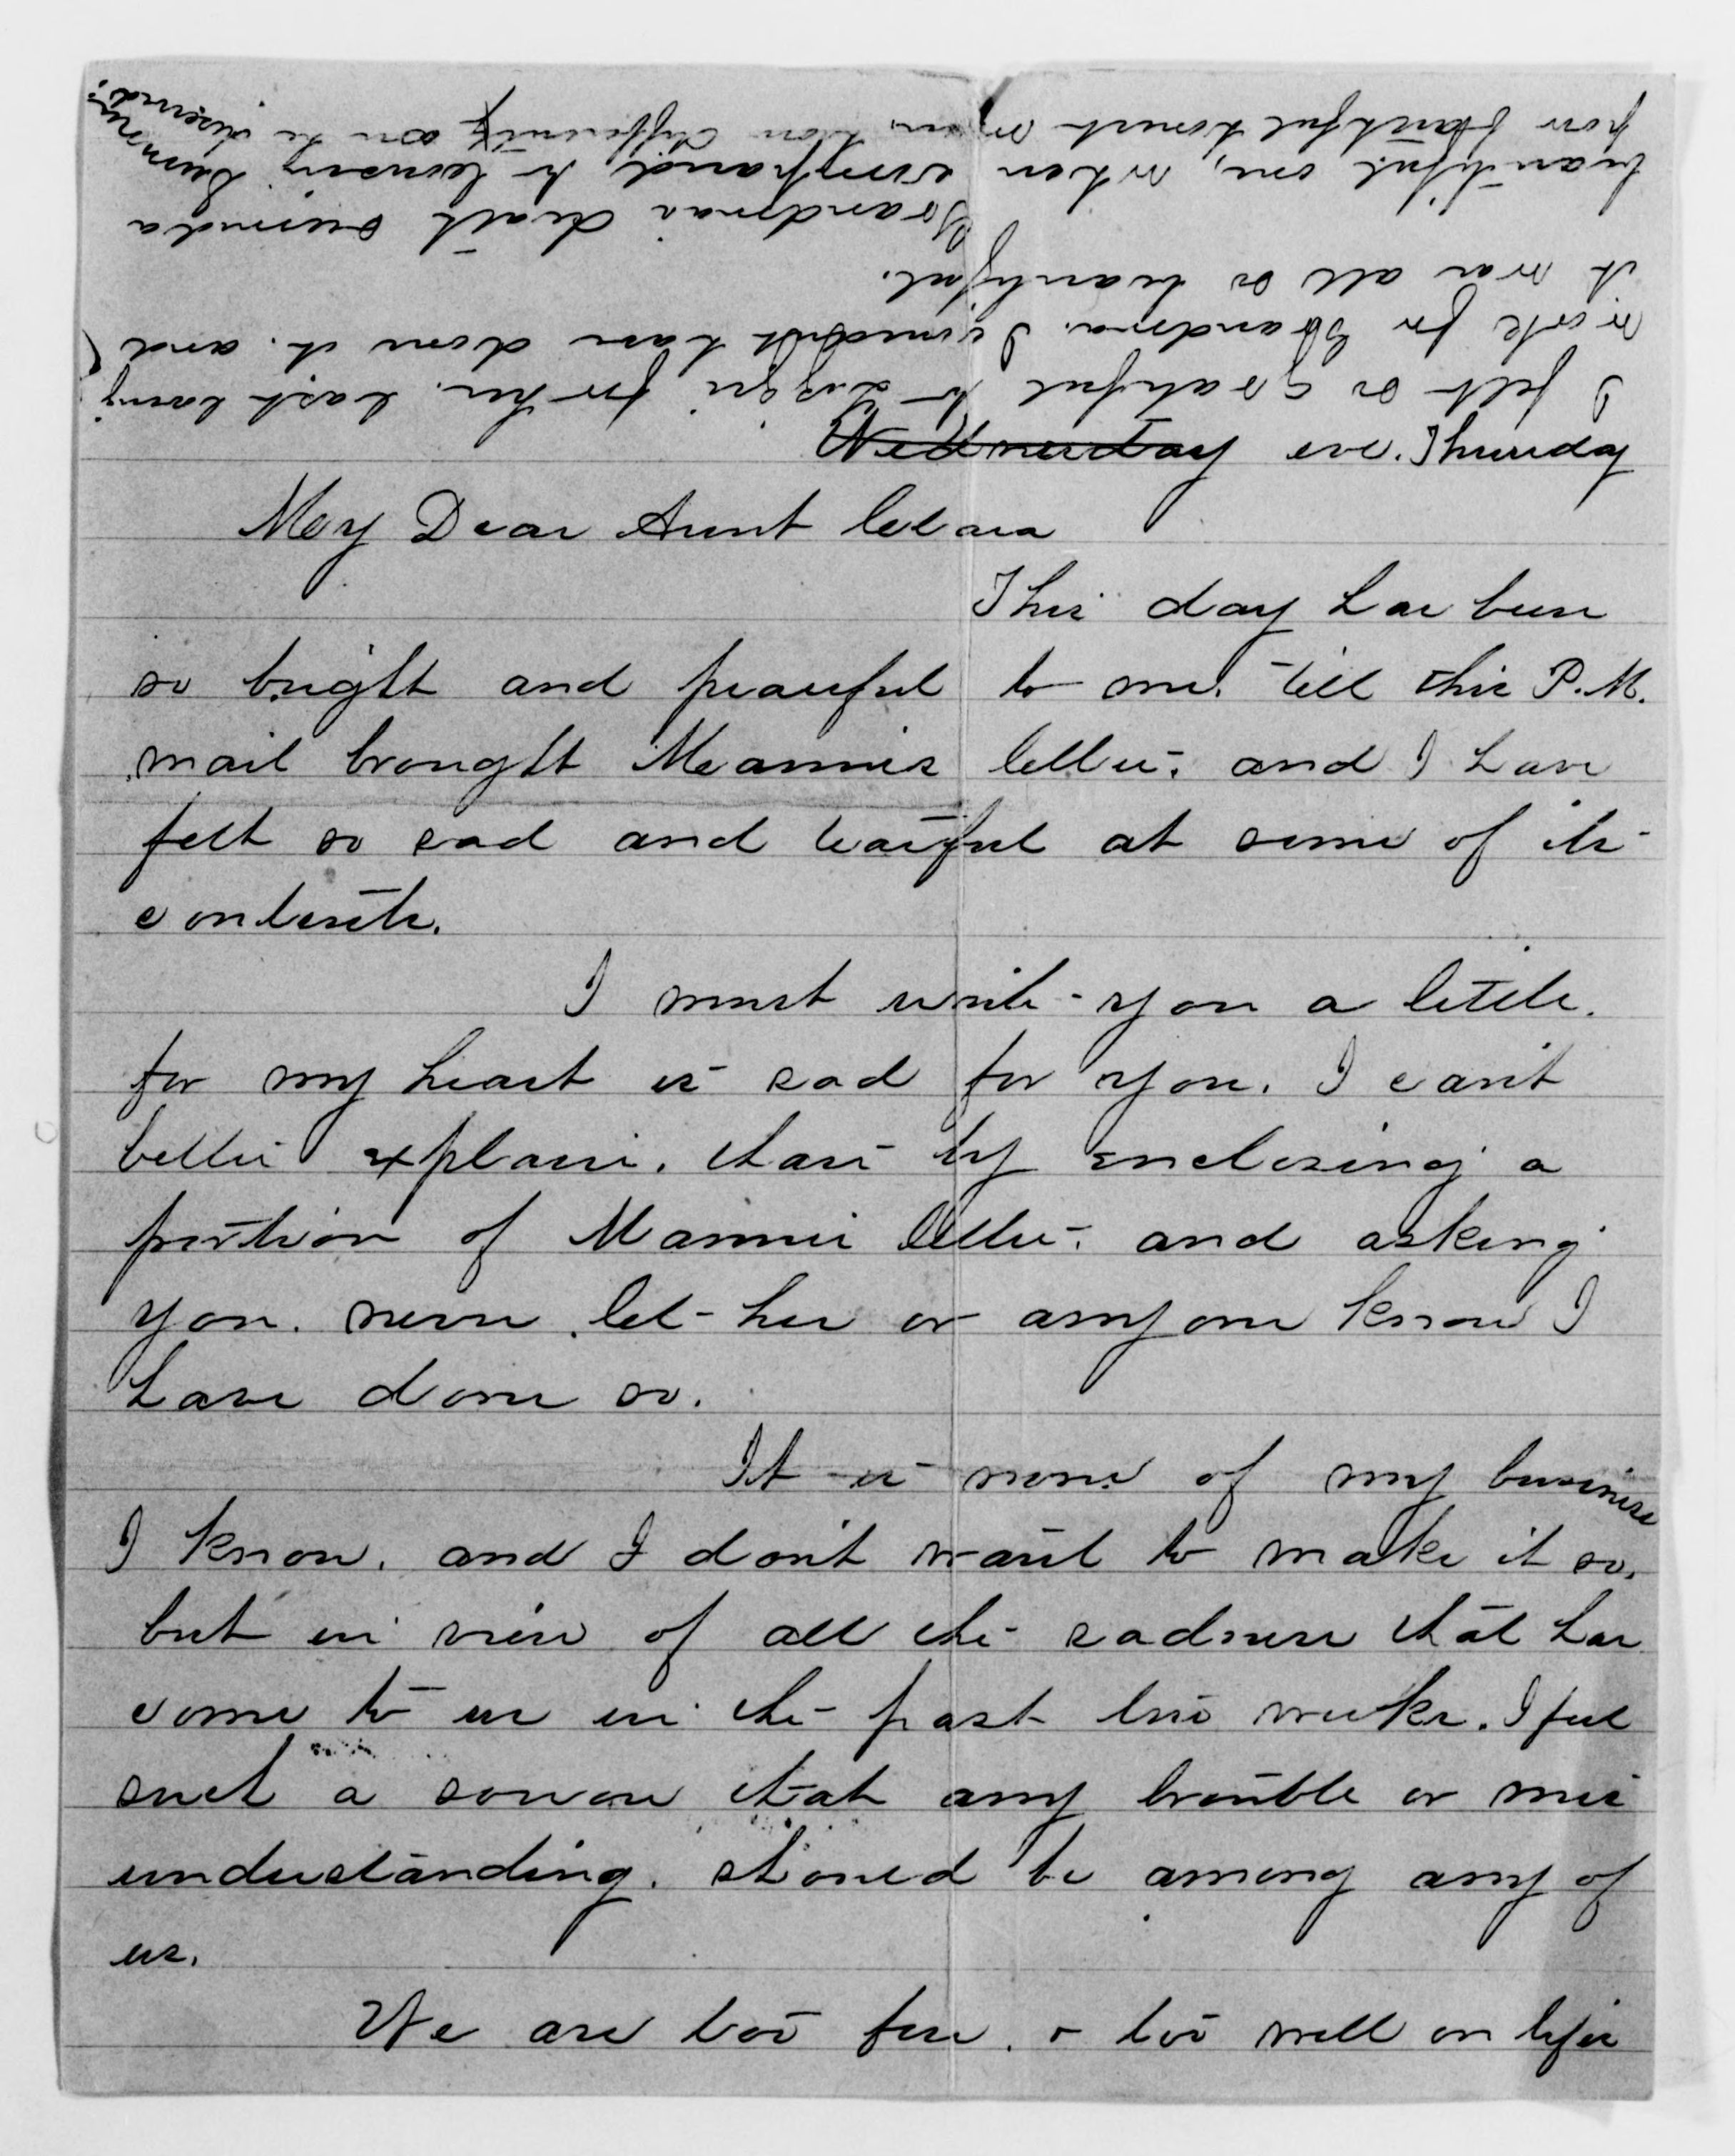 Wednesday eve. Thursday
My Dear Aunt Clara
This day has been
so bright and peaceful to me, till this P.M.
mail brought Mamies letter, and I have
felt so sad and tearful at some of its
contents.
I must write you a little.
for my heart is sad for you. I can't
better explain, than by enclosing a
portion of Mamies letter, and asking
you, never let her or anyone know I
have done so.
It is none of my business
I know, and I don't want to make it so,
but in view of all the sadness that has
come to us in the past two weeks. I feel
such a sorrow that any trouble or mis
understanding, should be among any of
us.
We are too few, & too well on life's
I felt so grateful to Lizzie for her last loving
work for Grandma. I couldn't have done it. and
it was all so beautiful.
Grandmas death seemed a
beautiful one, when compared to
poor faithful honest how differently can be discerned.